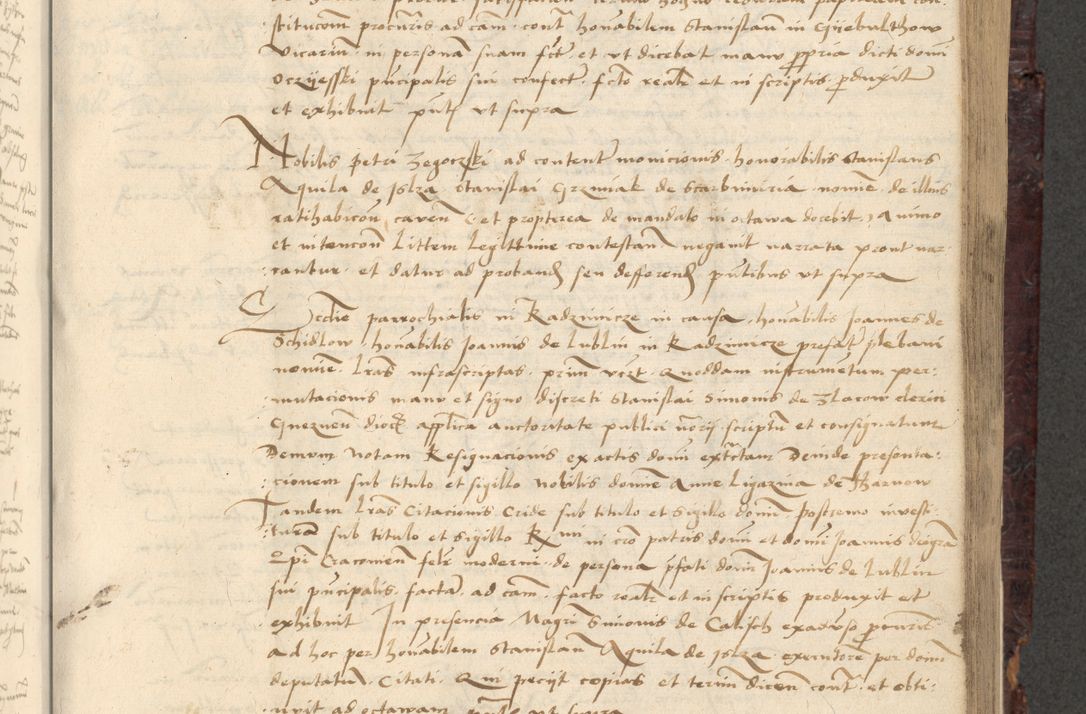 stitucom procuris ad cam cont honabilem Stanislau in Gyebulthow
vicariu in persona suam fct et vt dicebat manu ppria dicti domi
Oczyesski pncipalis sui confect fcto realr et in scriptis pduxit
et exhibuit pnt vt supra
Nobilis petri Zegoczki ad content monicionis honorabilis Stanislaus
Aquila de Islza Stanislai Grzmiak de Scarbimiria nomie de illius
ratihabicou caven et propterea de mandato in octawa docebit Animo
et intencon Littem legittime contestan negauit narrata prout nar
rantur et datur ad proband seu defferend ptibus vt supra
Eccdie parrochialis in Radzimicze in causa honabilis Joannes de
Schidlow honabilis Joannis de Lublin in Radzimicze prefat plebani
nomie lras infrascriptas primu vczt Quoddam instrumetum per
mutacionis manu et signo discreti Stanislai Simonis de Zlacow clerici
Gneznen dioc applica auctoritate publici norij scriptu et consignatum
Demum Notam Resignacionis ex actis domi extctam Deinde presenta
cionem sub titulo et sigillo Nobilis domine Anne Ligazina de Tharnow
Tandem lras Citacionis Cride sub titulo et Sigillo domi postremo inuesti
turam sub titulo et sigillo Rmi in cro patris domi et domi Joannis dei gra
Epi Cracouien felr moderni de persona pfati domi Joannis de Lublin
sui pncipalis factas ad cam facto realr et in scriptis produxit et
exhibuit In presencia Magri Simonis de Calisch ex aduso pcuris
ad hoc per honabilem Stanislau Aquila de Islza executore per domi
deputatu Citati Qui peciit copias et termi dicen cont et obti
nuit ad octauam